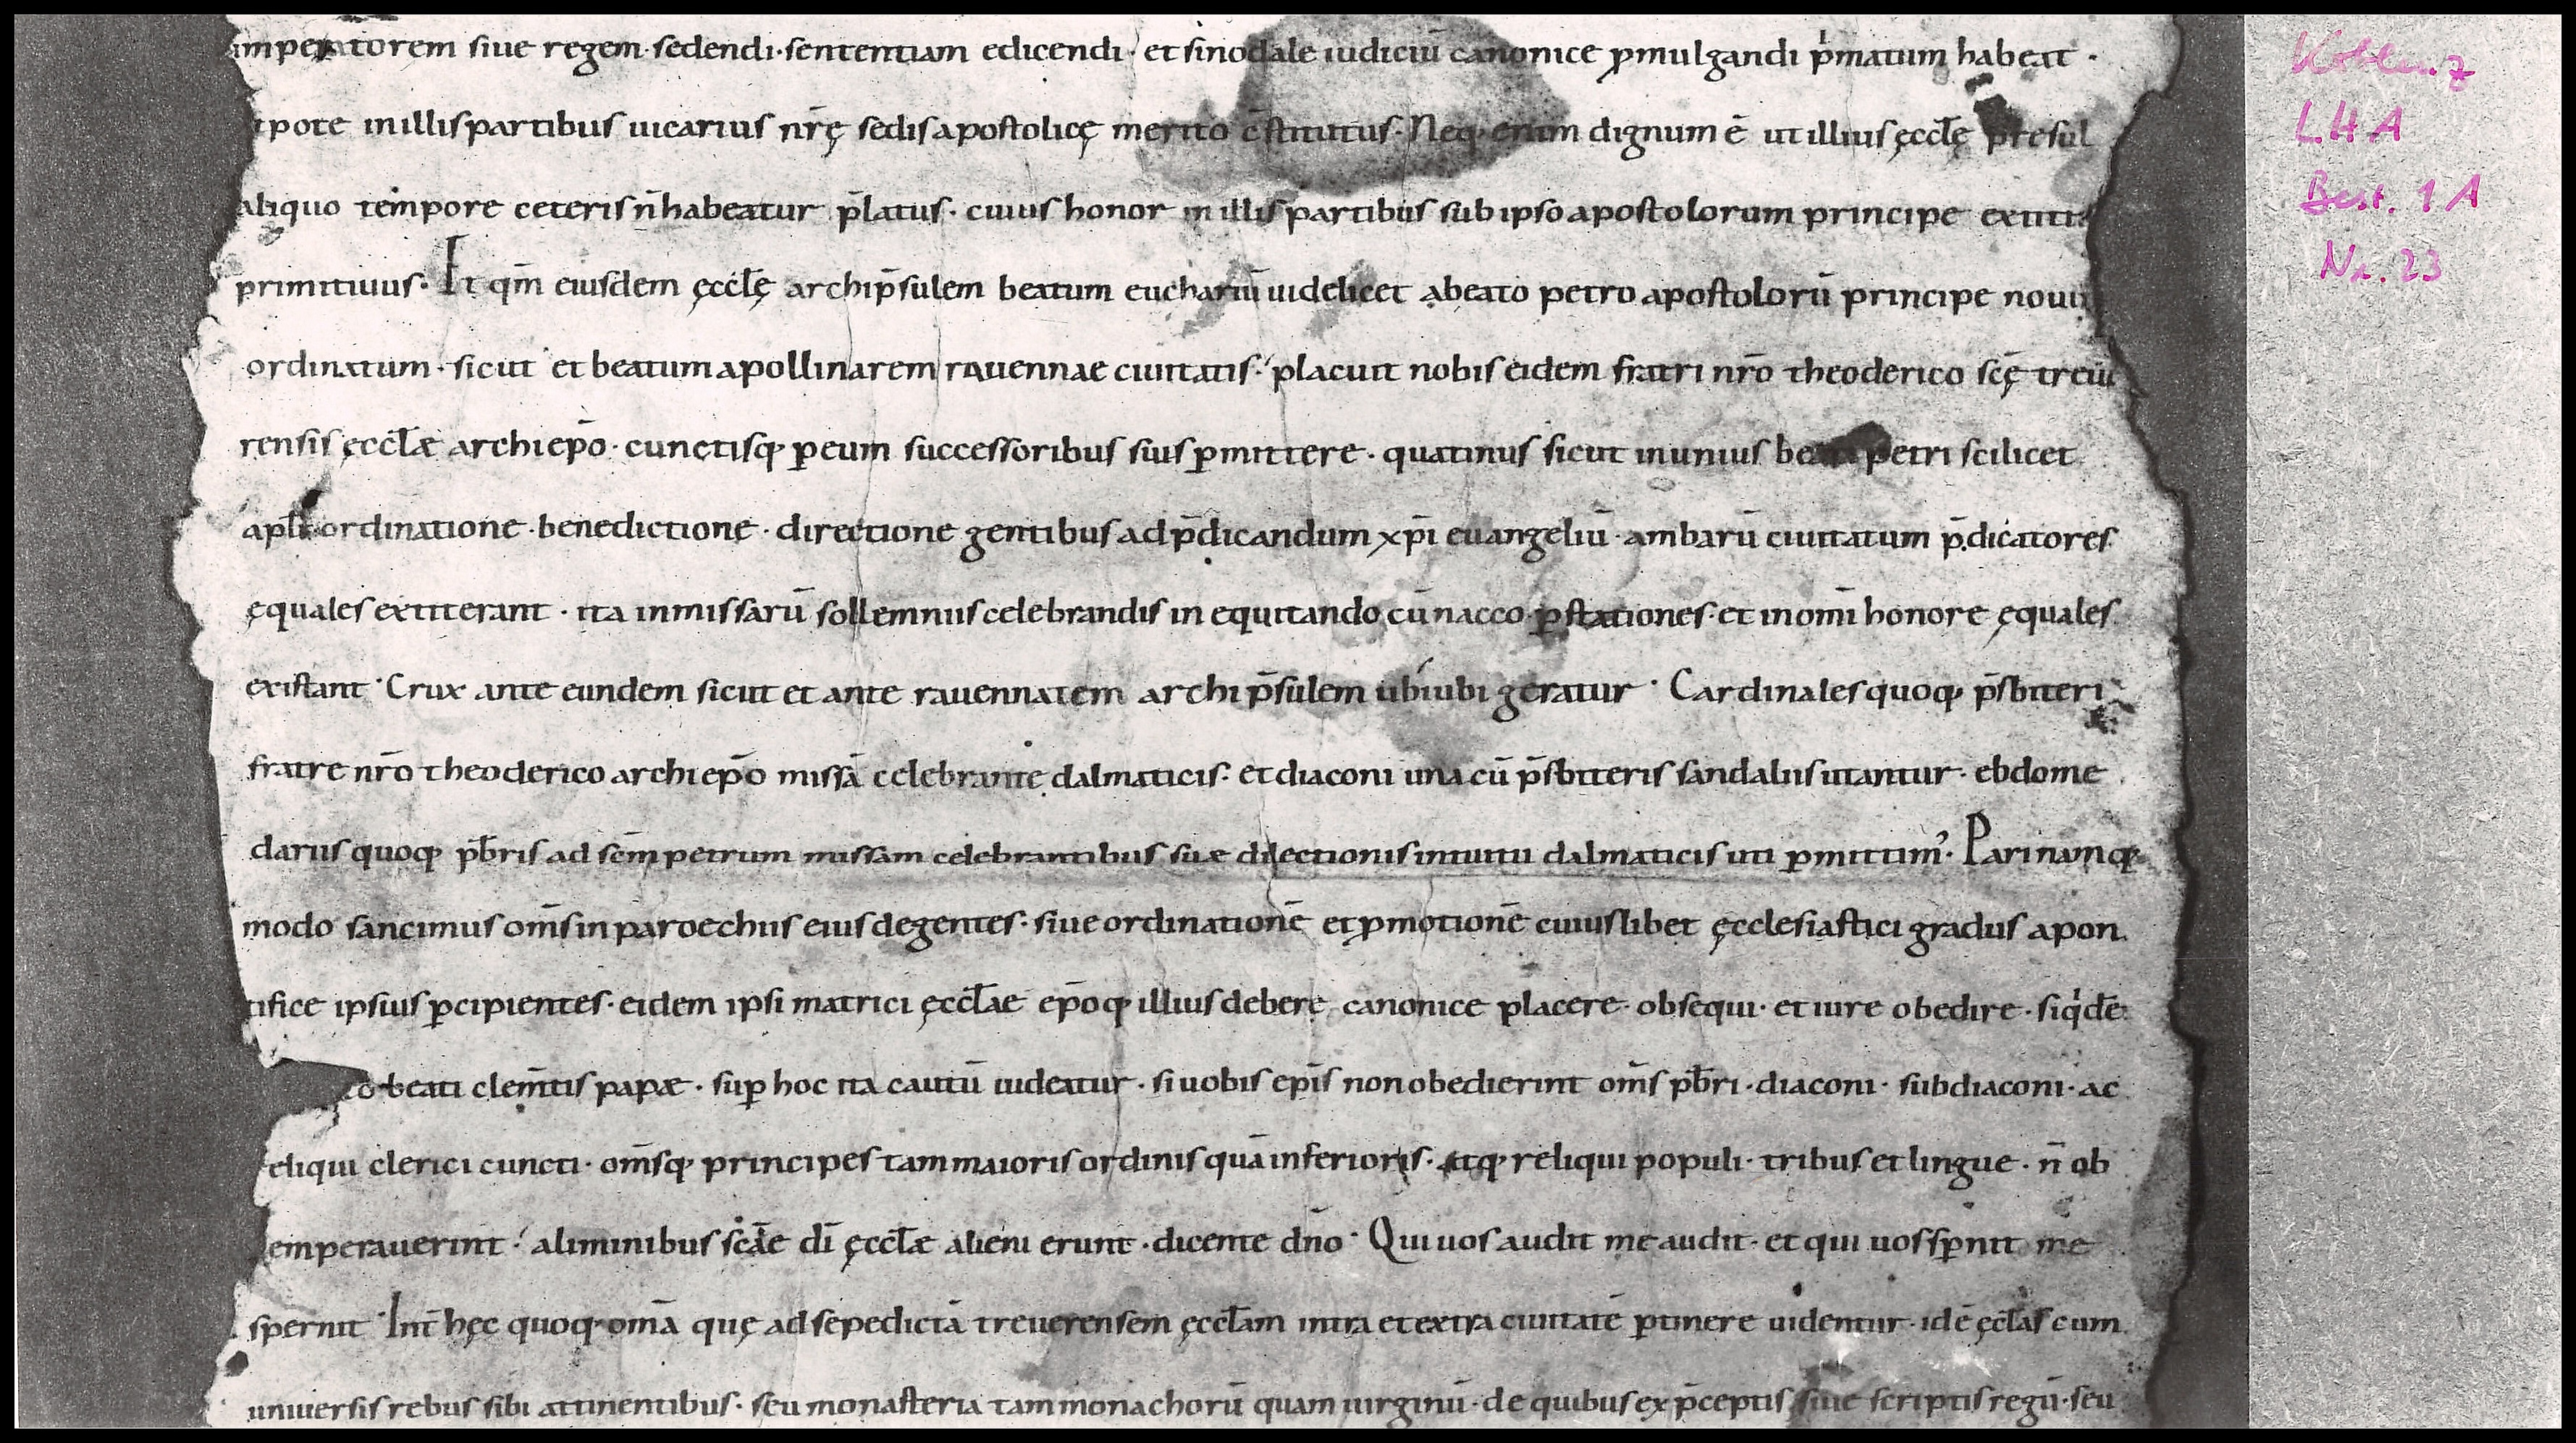 imperatorem siue regem sedendi · sententiam edicendi · et sinodale iudiciū canonice ꝓmulgandi p̍matum habeat ·
tpote in illis partibus uicarius nr̄ę sedis apostolicę merito c̄stitutus · Neq; enim dignum ē ut illius ęccl̄ę presul
aliquo tempore ceteris n̄ habeatur p̄latus · cuius honor in illis partibus sub ipso apostolorum principe extiti
primitiuus · Et qm̄ eiusdem ęccl̄ę archip̄sulem beatum euchariū uidelicet a beato petro apostolorū principe noui
ordinatum · sicut et beatum apollinarem rauennae ciuitatis · placuit nobis eidem fratri nr̄o theoderico scę̄ treūi
rensis ęccl̄æ archiep̄o · cunctisq; ꝑ eum successoribus suis ꝑmittere · quatinus sicut in unius beati petri scilicet
apl̄i ordinatione · benedictione · directione gentibus ad p̄dicandum xp̄i euangeliū · ambarū ciuitatum p̄dicatores
ęquales extiterant · ita in missarū sollemniis celebrandis in equitando cū nacco ꝑ stationes · et in omī honore ęquales
existant · Crux ante eundem sicut et ante rauennatem archip̄sulem ubiubi geratur · Cardinales quoq; p̄sbiteri
fratre nr̄o theoderico archiep̄o missā celebrante dalmaticis · et diaconi una cū p̄sbiteris sandaliis utantur · ebdome
dariis quoq; pb̄ris ad sc̄m petrum missam celebrantibus suæ dilectionis intuitu dalmaticis uti ꝑmittim᾿ · Pari namq;
modo sancimus om̄s in paroechiis eius degentes · siue ordinationē et ꝓmotionē cuiuslibet ęcclesiastici gradus a pon
tifice ipsius ꝑcipientes · eidem ipsi matrici ęccl̄ae ep̄oq; illius debere canonice placere · obsequi · et iure obedire · siq̍dē
o beati clem̄tis papæ · suꝑ hoc ita cautū uideatur · si uobis ep̄is non obedierint om̄s pb̄ri · diaconi · subdiaconi · ac
eliqui clerici cuncti · om̄sq; principes tam maioris ordinis quā inferioris · atq; reliqui populi · tribus et lingue · n̄ ob
emperauerint · a liminibus sc̄ae dī ęccl̄æ alieni erunt · dicente dn̄o · Qui uos audit me audit · et qui uos sꝑnit me
spernit · Int̄ hęc quoq; om̄a quę ad sepedictā treuerensem ęccl̄am intra et extra ciuitatē ꝑtinere uidentur · idē ęccl̄as cum
uniuersis rebus sibi attinentibus · seu monasteria tam monachorū quam uirginū · de quibus ex p̄ceptis siue scriptis regū · seu
Koblenz
LHA
Best. 1 A
Nr. 23